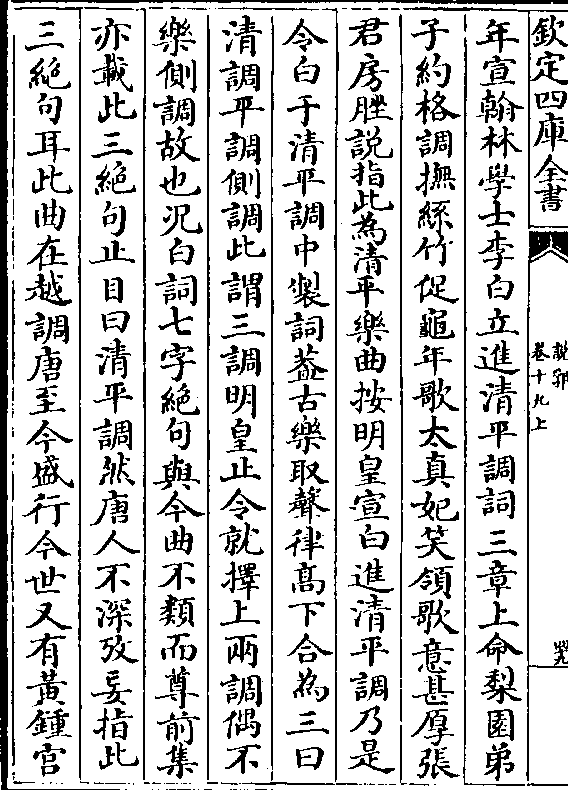 欽定四庫全書
說郛
卷十九上
年宣翰林學士李白立進清平調詞三章上命梨園弟
子約格調撫絲竹促龜年歌太真妃笑領歌意甚厚張
君房脞説指此為清平樂曲按明皇宣白進清平調乃是
令白于清平調中製詞葢古樂取聲律髙下合為三曰
清調平調側調此謂三調明皇止令就擇上兩調偶不
樂側調故也况白詞七字絶句與今曲不類而尊前集
亦載此三絶句止目曰清平調然唐人不深攷妄指此
三絶句耳此曲在越調唐至今盛行今世又有黃鍾宮